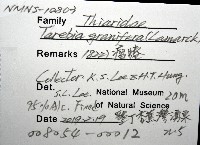 NMNS-10807
Family Thiaridae
Tarebia granifera (Lamarck,
Remarks 1822) 福燈
Collector K.S. Lee & H.T. Hung.
Det. S.C. Lee. National Museum 20m
95% Alc. Fund of Natural Science
Date 2019-2-19
008054-00012 n=5